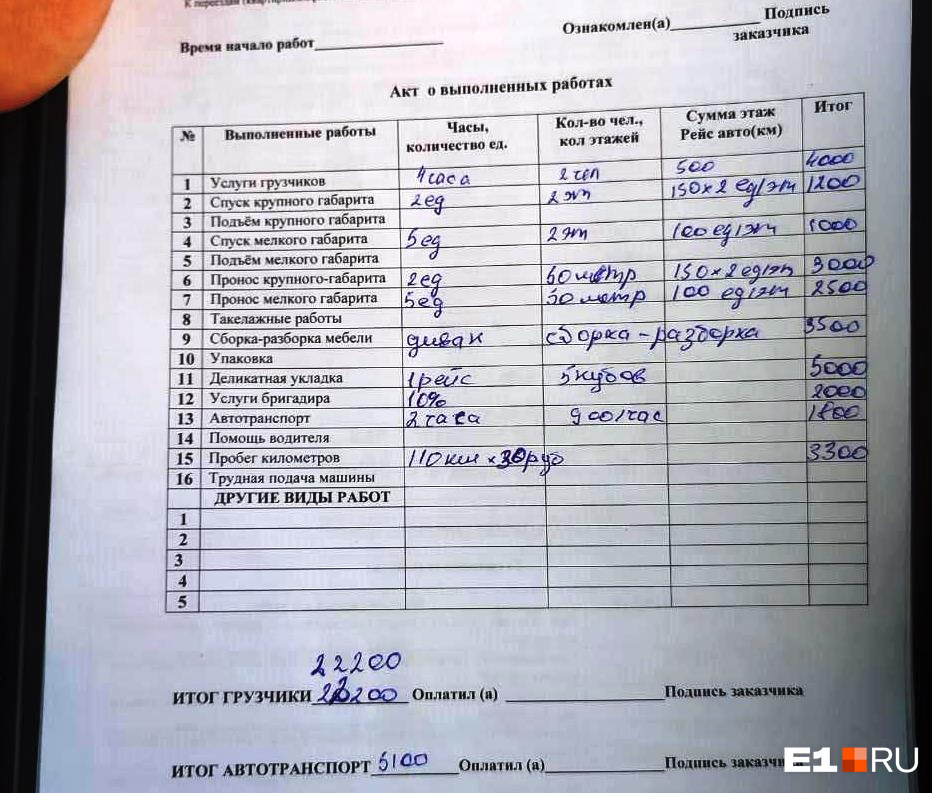 Время начало работ
Ознакомлен(а) Подпись
заказчика
Акт о выполненных работах
№ Выполненные работы Часы, количество ед. Кол-во чел., кол этажей Сумма этаж Рейс авто(км) Итог
1 Услуги грузчиков 4 часа 2 чел 500 4000
2 Спуск крупного габарита 2ед 2 эт 150х2 ед/эт 1200
3 Подъём крупного габарита
4 Спуск мелкого габарита 5ед 2эт 100 ед/эт 1000
5 Подъём мелкого габарита
6 Пронос крупного-габарита 2ед 50 метр 150х2 ед/эт 3000
7 Пронос мелкого габарита 5ед 50 метр 100 ед/эт 2500
8 Такелажные работы
9 Сборка-разборка мебели диван сборка-разборка 3500
10 Упаковка
11 Деликатная укладка 1рейс 5кубов 5000
12 Услуги бригадира 10% 2000
13 Автотранспорт 2 часа 900/час 1800
14 Помощь водителя
15 Пробег километров 110км х 30руб 3300
16 Трудная подача машины
ДРУГИЕ ВИДЫ РАБОТ
1
2
3
4
5
22200
ИТОГ ГРУЗЧИКИ 22200 Оплатил (а) Подпись заказчика
ИТОГ АВТОТРАНСПОРТ 5100 Оплатил (а) Подпись
E1.RU